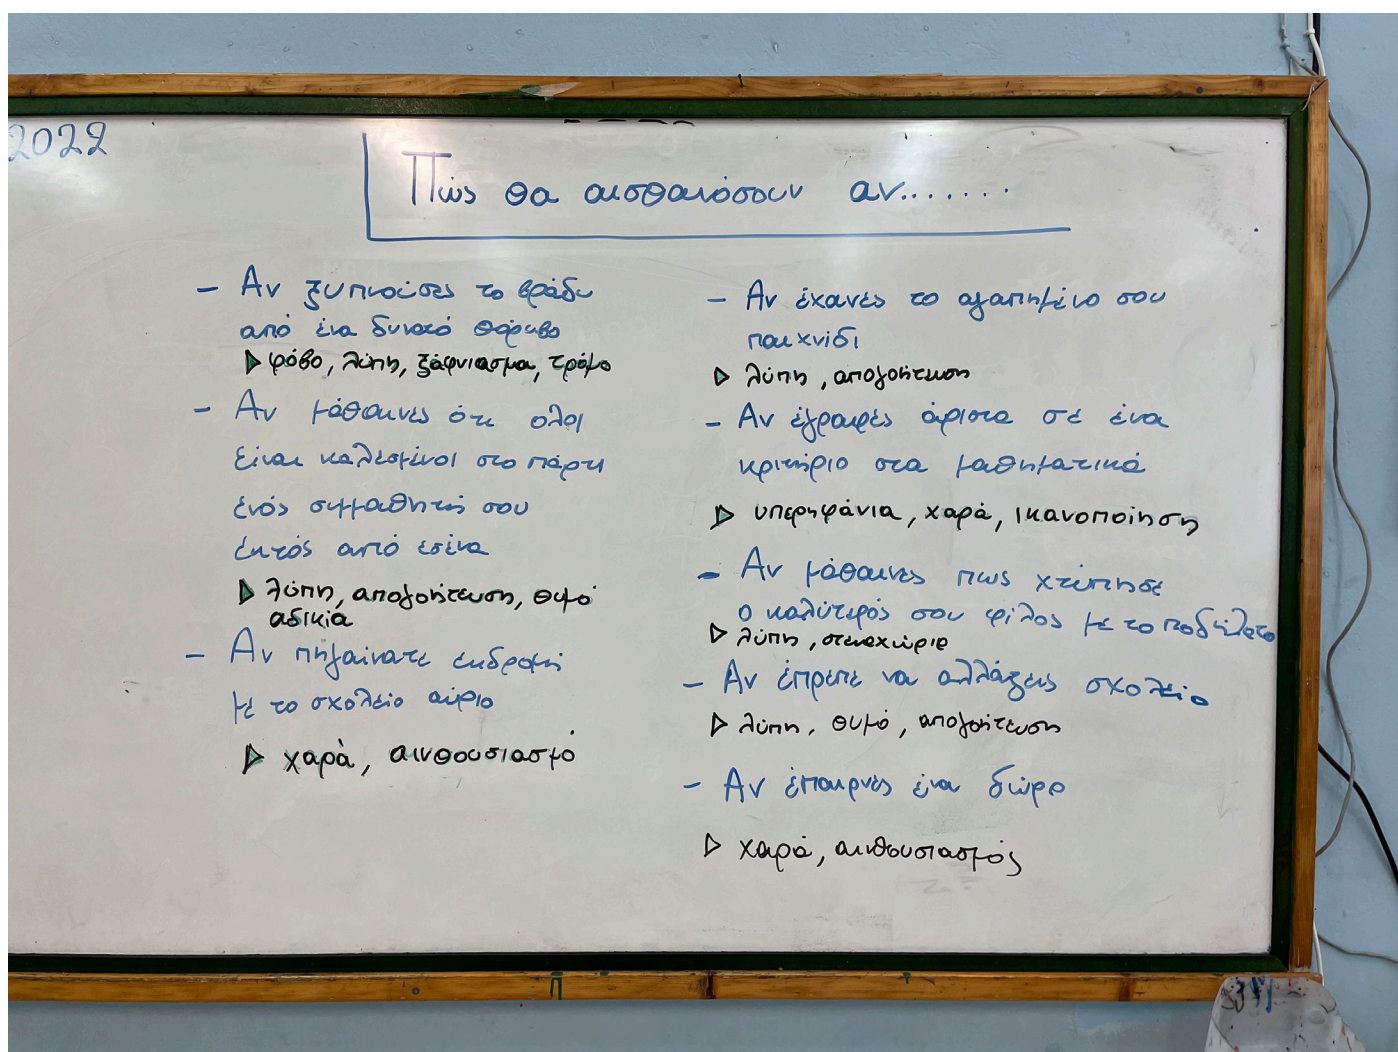 2022
Πώς θα αισθανόσουν αν.......
- Αν ξυπνούσες το βράδυ
από ένα δυνατό θόρυβο
▷ φόβο, λύπη, ξάφνιασμα, τρόμο
- Αν μάθαινες ότι ολοι
είναι καλεσμένοι στο πάρτι
ενός συμμαθητή σου
εκτός από εσένα
▷ λύπη, απογοήτευση, θυμό
αδικία
- Αν πηγαίνατε εκδρομή
με το σχολείο αύριο
▷ χαρά, αινθουσιασμό
- Αν έχανες το αγαπημένο σου
παιχνίδι
▷ λύπη, απογοήτευση
- Αν έγραφες άριστα σε ένα
κριτήριο στα μαθηματικά
▷ υπερηφάνια, χαρά, ικανοποίηση
- Αν μάθαινες πως χτύπησε
ο καλύτερός σου φίλος με το ποδήλατο
▷ λύπη, στεναχώρια
- Αν έπρεπε να αλλάξεις σχολείο
▷ λύπη, θυμό, απογοήτευση
- Αν έπαιρνες ένα δώρο
▷ χαρά, αινθουσιασμός